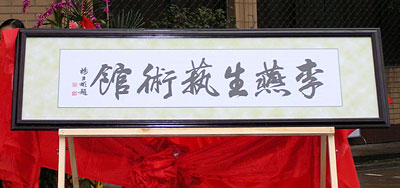 李燕生藝術館